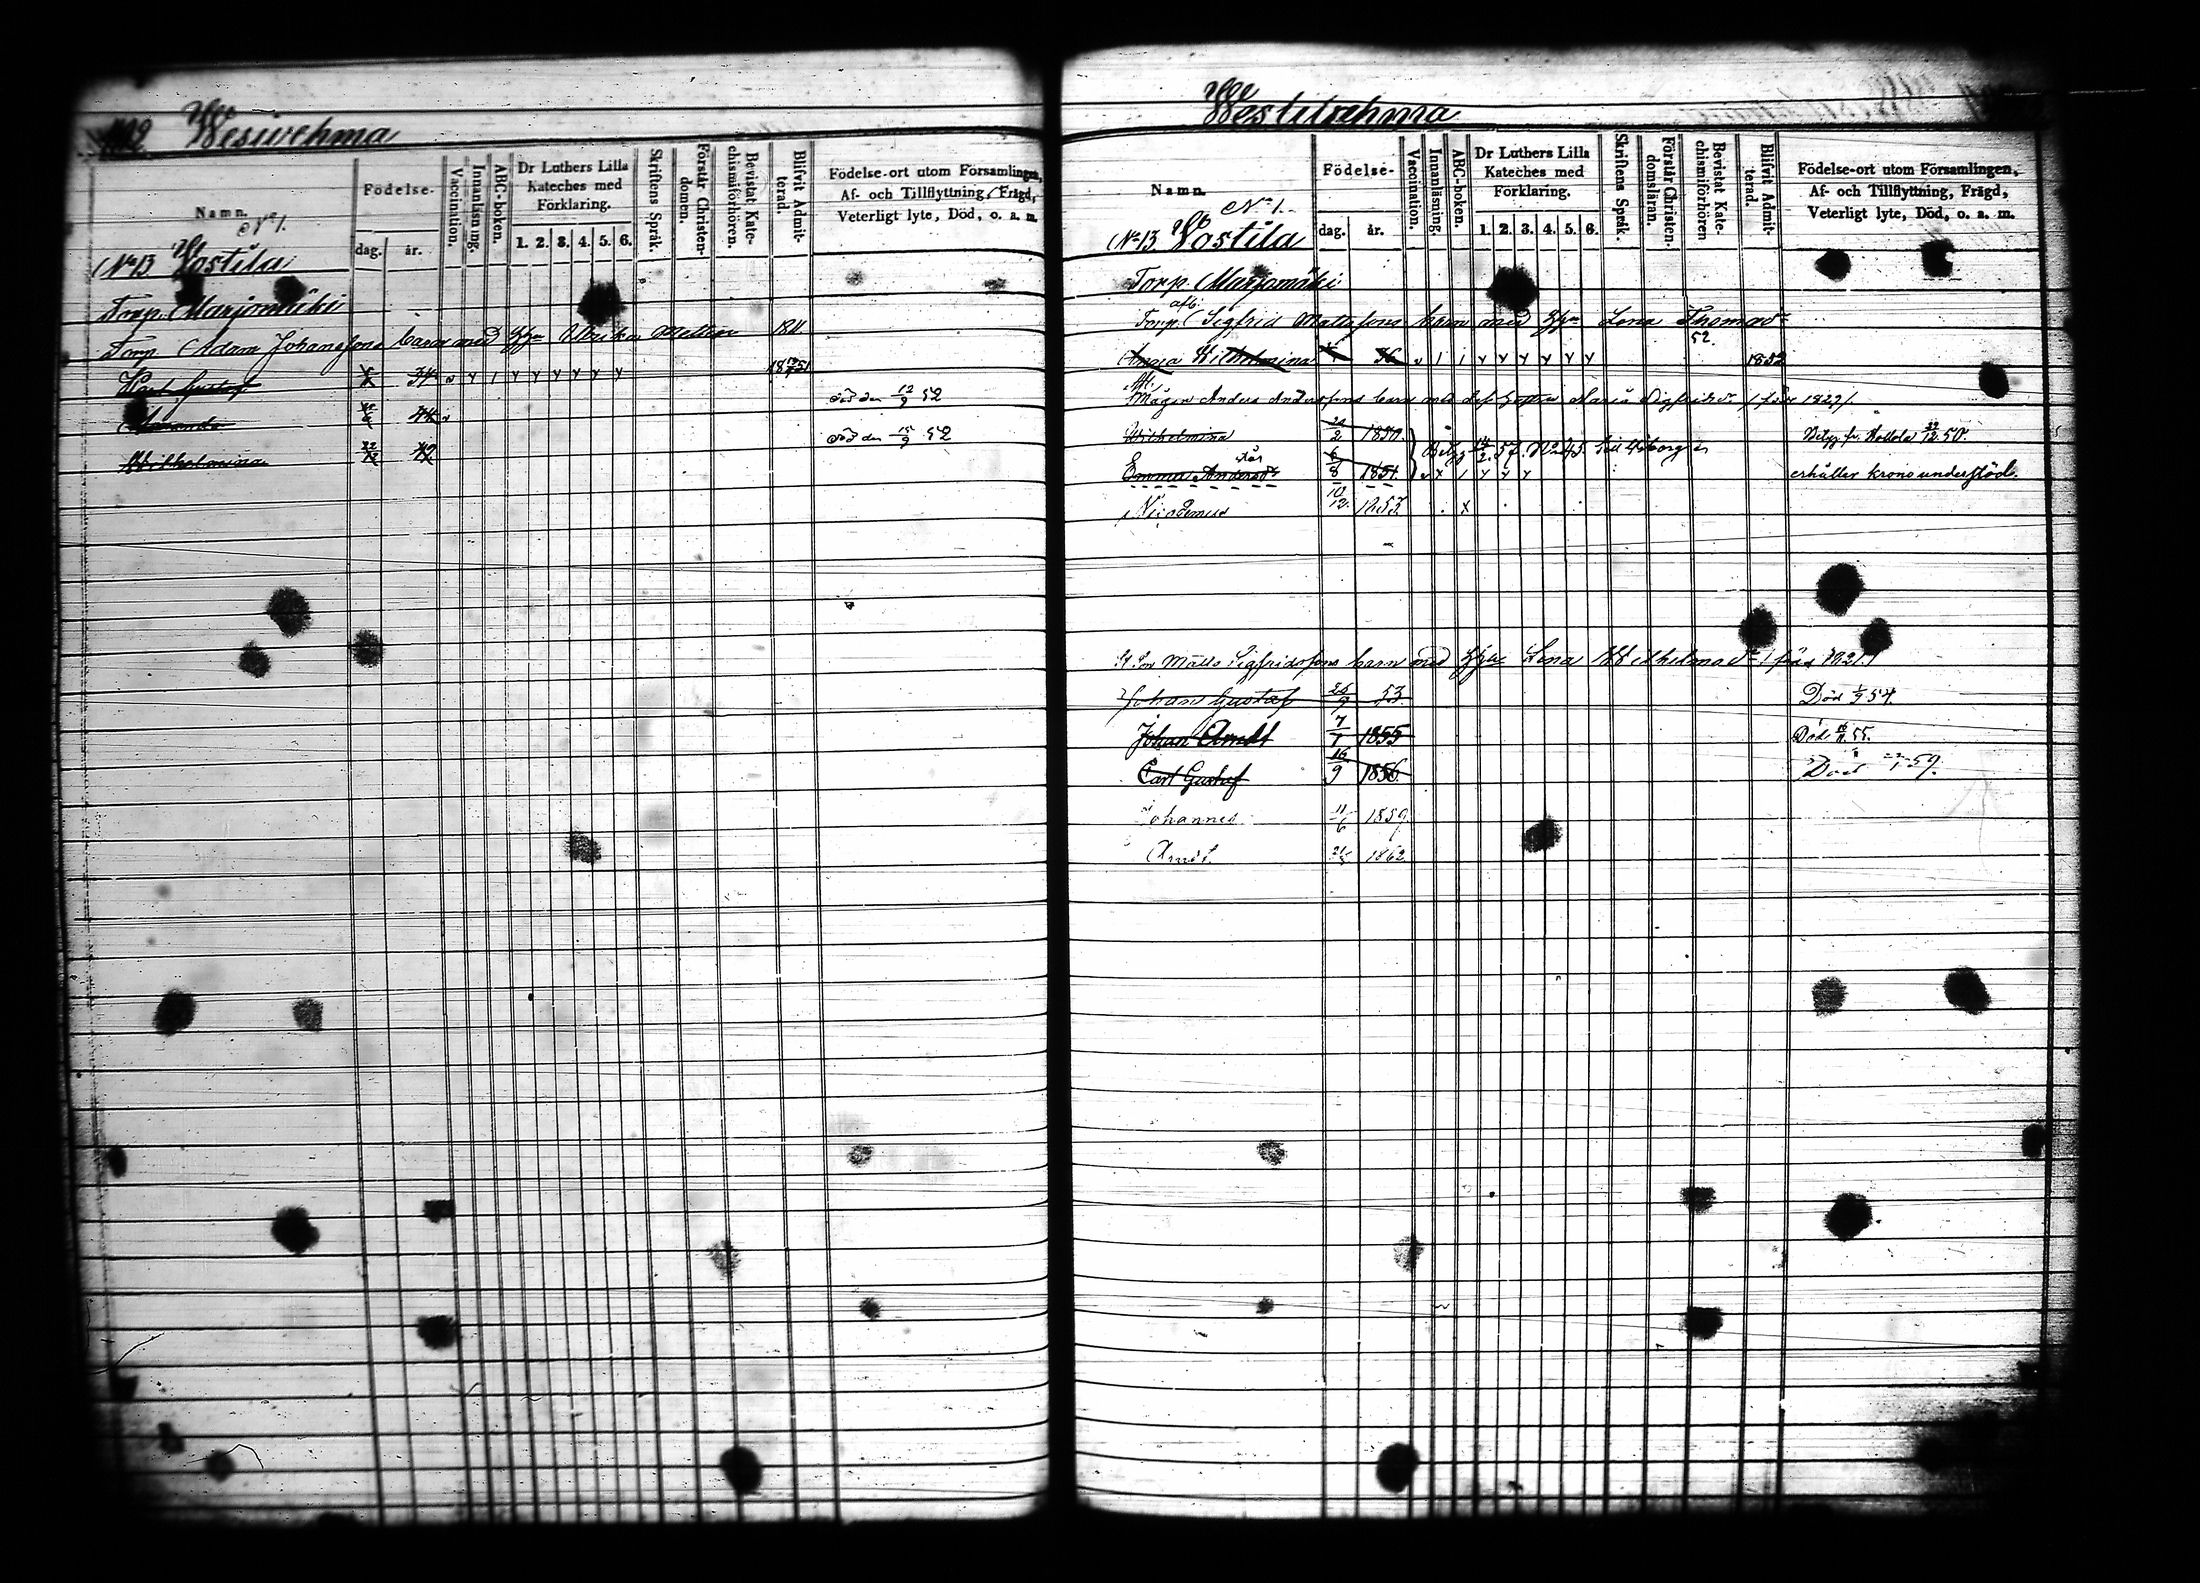 Wesivehma
Namn.
Födelse-
dag.
år.
Vaccination.
Innanläsning.
ABC-boken.
Dr Luthers Lilla
Kateches med
Förklaring.
1. 2. 3. 4. 5. 6.
Skriftens Språk.
Förstår Christen-
domen.
Bevistat Kate-
chismiförhören.
Blifvit Admit-
terad.
Födelse-ort utom Församlingen,
Af- och Tillflyttning, Frägd,
Veterligt lyte, Död, o. a. m.
No 1.
No 13 Wostila
Torp. Marjomäki
Torp Adam Johanssons barn med Hu Ulrika 1811
Carl Gustaf 34
Amanda 44 död den 12/9 52
Wilhelmina 22/12 49 död den 15/9 52
Westivehma
Namn.
Födelse-
dag.
år.
Vaccination.
Innanläsning.
ABC-boken.
Dr Luthers Lilla
Kateches med
Förklaring.
1. 2. 3. 4. 5. 6.
Skriftens Språk.
Förstår Christen-
domsläran.
Bevistat Kate-
chismiförhören
Blifvit Admit-
terad.
Födelse-ort utom Församlingen,
Af- och Tillflyttning, Frägd,
Veterligt lyte, Död, o. a. m.
No 1.
No 13 Wostila
Torp. Marjomäki
afl.
Torp. Sigfrid Mattssons barn med Lena Thomasdr
52.
Anna Wilhelmina 36 1852
Afl.
Mågen Anders Anderssons barn med Maria Sigfridsdr 1829
Wilhelmina 1850. Hollola 29/12 50.
Betyg 14/2 57. No 45. till Wiborg
Emma Andersdr 6/8 1851. erhåller kronounderstöd.
Nicodemus 10/12 1853
Matts Sigfridssons barn med Lena Wilhelmsdr
Johan Gustaf 25/9 53. Död 1/9 54.
Johan Arndt 7/1 1855 Död 55.
Carl Gustaf 16/9 1856 Död 59.
Johannes 11/6 1859
Arndt 1862